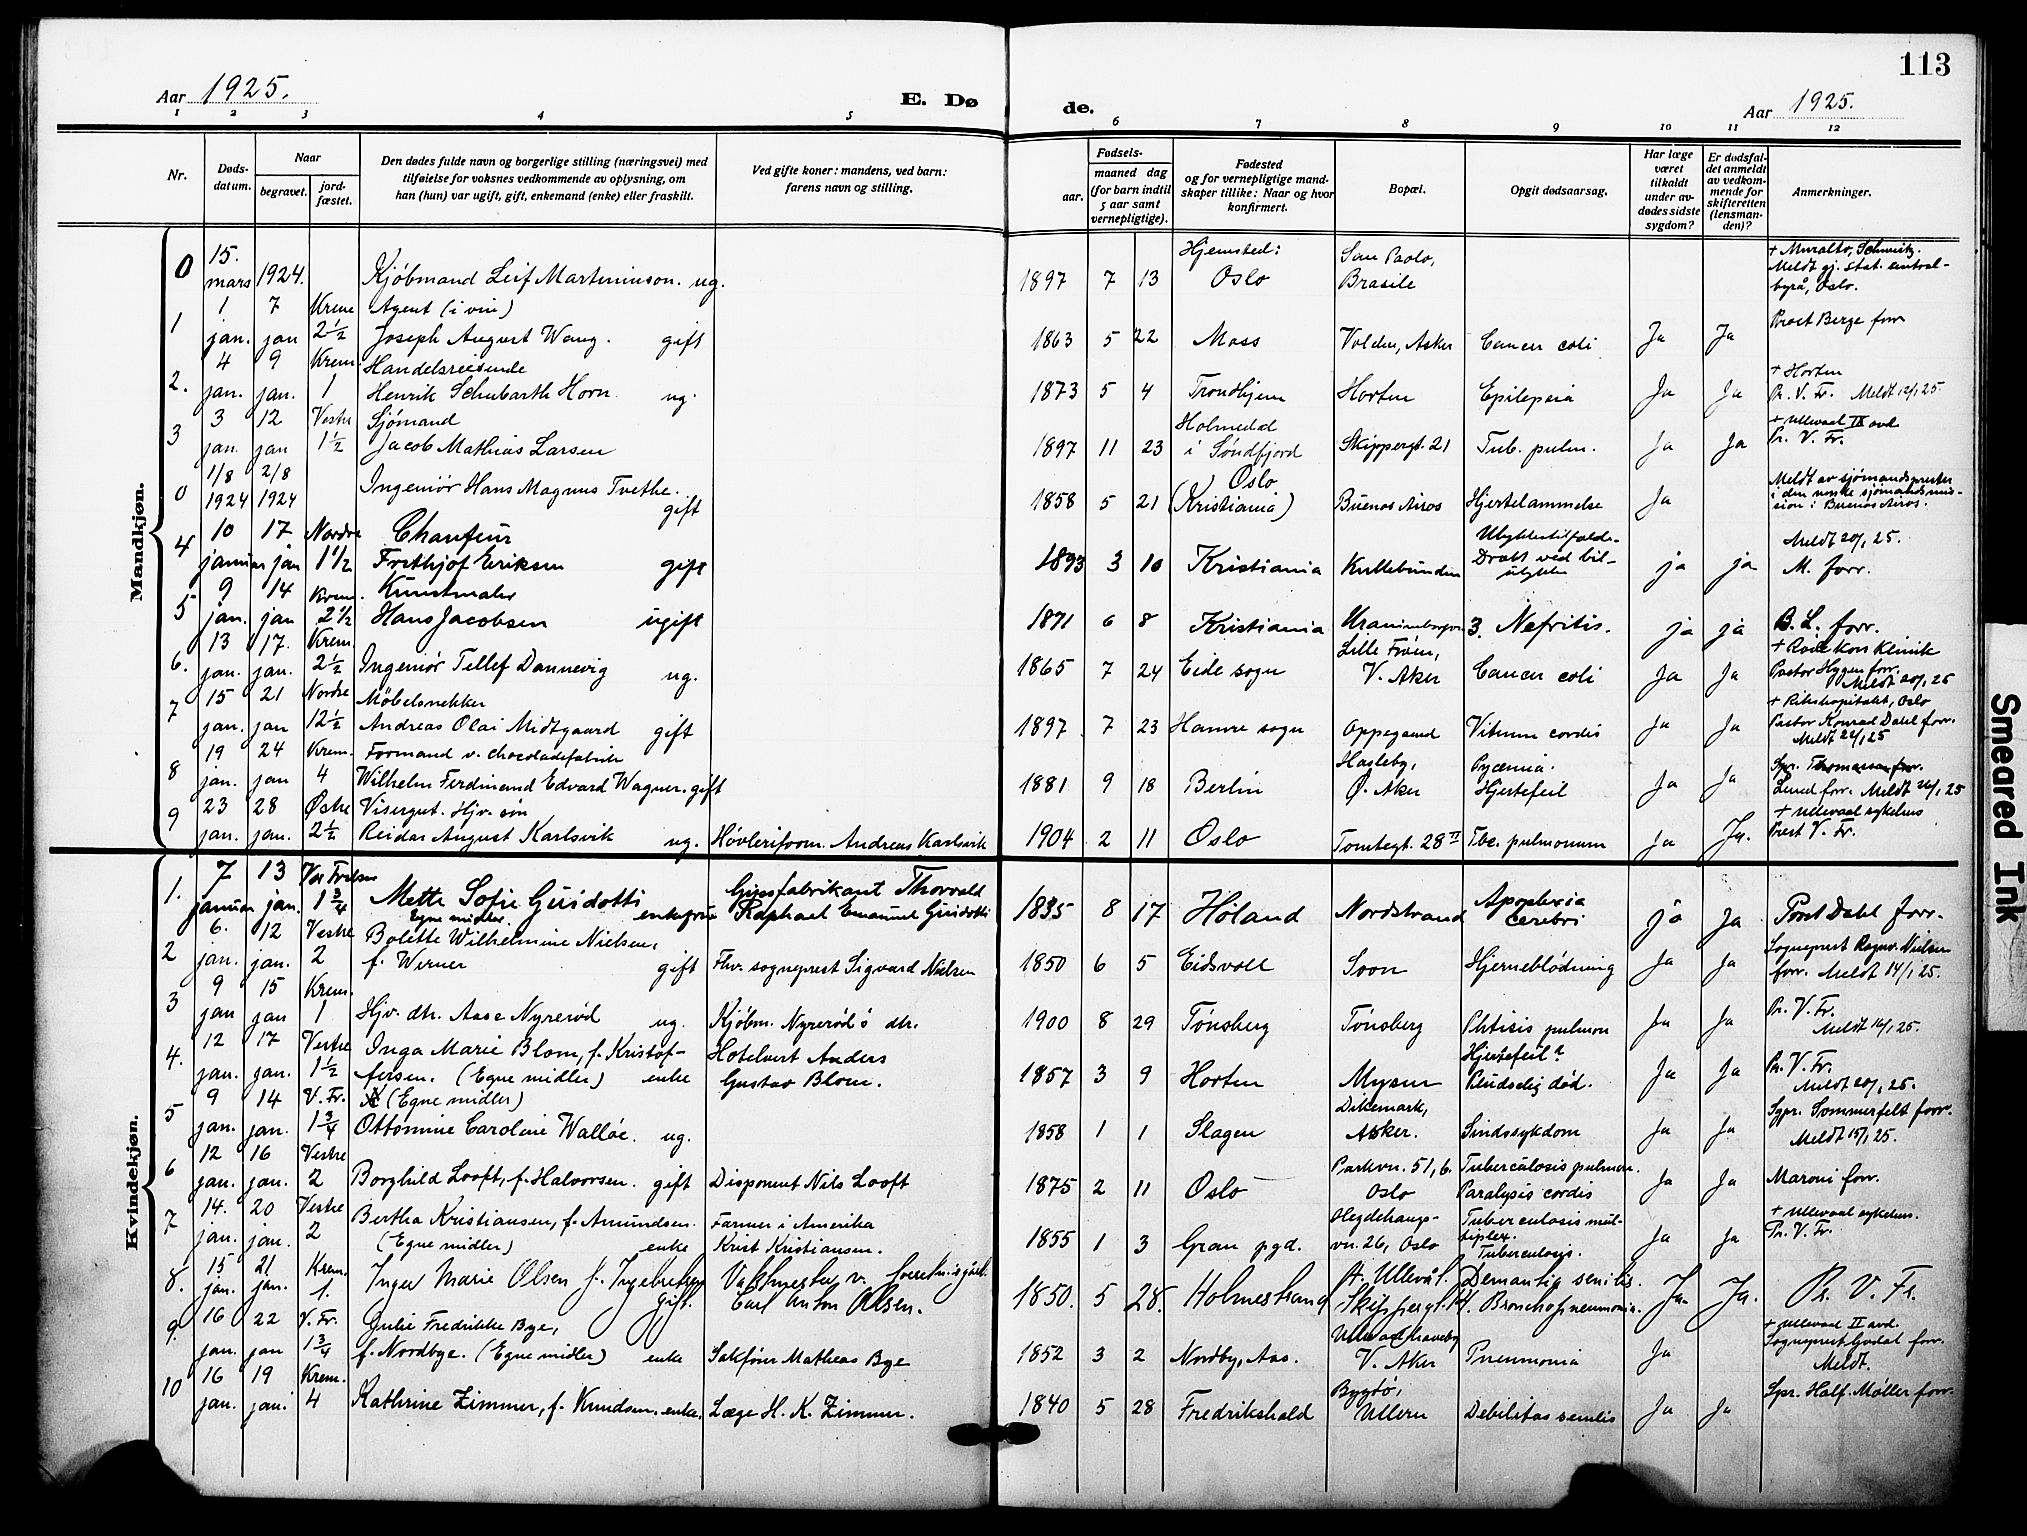 113
Aar 1925.
E. Dø de.
Aar 1925.
1 2 3 4 5 6 7 8 9 10 11 12
Nr.
Døds-
datum.
Naar
begravet.
jord-
fæstet.
Den dødes fulde navn og borgerlige stilling (næringsvei) med
tilføielse for voksnes vedkommende av oplysning, om
han (hun) var ugift, gift, enkemand (enke) eller fraskilt.
Ved gifte koner: mandens, ved barn:
farens navn og stilling.
Fødsels-
aar.
maaned dag
(for barn indtil
5 aar samt
vernepligtige).
Fødested
og for vernepligtige mand-
skaper tillike: Naar og hvor
konfirmert.
Bopæl.
Opgit dødsaarsag.
Har læge
været
tilkaldt
under av-
dødes sidste
sygdom?
Er dødsfal-
det anmeldt
av vedkom-
mende for
skifteretten
(lensman-
den)?
Anmerkninger.
Mandkjøn.
15. Hjemsted: San Paolo, + Muralto, Schweitz.
0 mars 1924. Kjöbmand Leif Martininson. ug. 1897 7 13 Oslo Brasile Meldt gj. stat. central-
byrå, Oslo.
1 7 Krem Agent (i vin)
1 jan. jan 2½ Joseph August Wang. gift 1863 5 22 Moss Volden, Asker Cancer coli Ja Ja Prost Berge forr
4 9 Krem. Handelsreisende + Horten
2. jan. jan. 1 Henrik Schubarth Horn. ug. 1873 5 4 Trondhjem Horten Epilepsia Ja Ja Pr. V. Fr. Meldt 12/1 25.
3 12 Vestre Sjömand Holmedal + Ullevaal IX avd
3 jan. jan 1½ Jacob Mathias Larsen 1897 11 23 i Söndfjord Skippergt. 21 Tub. pulm. Ja Ja Pr. V. Fr.
1/8 2/8 Oslo Meldt av sjömandspresten
0 1924 1924 Ingeniör Hans Magnus Tvethe. gift 1858 5 21 (Kristiania) Buenos Aires Hjertelammelse Ja i den norske sjömandsmis-
sion i Buenos Aires.
10 17 Nordre Chauffeur Ulykkestilfælde. Meldt 20/1 25.
4 januar jan 1½ Frithjof Eriksen gift 1893 3 10 Kristiania Kullebunden Dræpt ved bil-
ulykke ja ja M. forr.
9 14 Krem. Kunstmaler
5 jan. jan 2½ Hans Jacobsen ugift 1871 6 8 Kristiania 3. Nefritis. ja ja B. L. forr.
13 17. Krem. Lille Fröen, + Röde Kors Klinik
6. jan. jan. 2½ Ingeniör Tellef Dannevig ug. 1865 7 24 Eide sogn V. Aker Cancer coli Ja Ja Pastor Hygen forr.
Meldt 20/1 25
15 21 Nordre Möbelsnekker + Rikshospitalet, Oslo
7 jan. jan 12½ Andreas Olai Midtgaard gift 1897. 7 23 Hamre sogn Oppegaard Vitium cordis Ja Ja Pastor Konrad Dahl forr.
Meldt 22/1 25
19 24 Krem. Formand v. chocoladefabrik Hasleby, Pyæmia. Spr. Thomassen forr.
8 jan. jan 4 Wilhelm Ferdinand Edvard Wagner. gift 1881 9 18 Berlin Ö. Aker Hjertefeil Ja Ja Lund forr. Meldt 26/1 25
23 28 Östre Visergut. Hjv. sön + Ullevaal sykehus
9 jan. jan. 2½ Reidar August Karlsvik ug. Hövleriform. Andreas Karlsvik 1904 2 11 Oslo Tomtegt. 28 II Tbc. pulmonum ja Ja. Prest V. Fr.
Kvindekjøn.
7 13 Vor Frelser Gipsfabrikant Thorvald Apoplexia
1. januar jan. 1¾ Mette Sofie Guidotti enkefrue Raphael Emanuel Guidotti 1835 8 17 Höland Nordstrand cerebri ja Ja Prost Dahl forr.
Egne midler.
6. 12 Vestre Bolette Wilhelmine Nielsen, Sogneprest Ragnv. Nielsen
2 jan. jan. 2 f. Werner gift Fhv. sogneprest Sigvard Nielsen 1850 6 5 Eidsvoll Soon Hjerneblödning Ja Ja forr. Meldt 14/1 25.
9 15 Krem. Pr. V. Fr.
3 jan jan 1 Hjv. dtr. Aase Nyreröd ug. Kjöbm. Nyreröds dtr. 1900 8 29 Tönsberg Tönsberg Phtisis pulmon Ja Ja Meldt 16/1 25.
12 17 Vestre Inga Marie Blom, f. Kristof- Hotelvert Anders Hjertefeil? Pr. V. Fr.
4. jan. jan. 1½ fersen. (Egne midler) enke Gustav Blom. 1857 3 9 Horten Mysen Pludselig död. Ja Ja Meldt 20/1 25.
9 14 V. Fr. (Egne midler) Dikemark, Sgpr. Sommerfelt forr.
5 jan. jan. 1¾ Ottomine Caroline Wallöe. ug. 1858 1 1 Slagen Asker. Sindssykdom Ja Ja Meldt 15/1 25.
12 16 Vestre Parkvn. 51, 6. Tuberculosis pulmon.
6 jan. jan. 2 Borghild Looft, f. Halvorsen. gift Disponent Nils Looft 1875 2 11 Oslo Oslo Paralysis cordis Ja Ja Maroni forr.
14. 20 Vestre Bertha Kristiansen, f. Amundsen. Farmer i Amerika Hegdehaugs- Tuberculosis mul- + Ullevaal sykehus.
7 jan. jan. 2 (Egne midler) enke Krist Kristiansen. 1855 1 3 Gran pgd. vn. 26, Oslo tiplex. Ja Ja Pr. V. Fr.
Tuberculosis.
15 21 Krem. Inger Marie Olsen f. Ingebretsen Vaktmester v. + Ullevål. Dementia senilis.
8. jan. jan. 1. gift. Carl Anton Olsen. 1850. 5 28. Holmestrand Skippergt. Bronchopneumonia. Ja. Ja. Pr. V. Fr.
16 22 V. Fr. Julie Fredrikke Bye, Ullevaal haveby + Ullevaal II avd.
9. jan. jan 1¾ f. Nordbye. (Egne midler) enke Sakförer Mathias Bye 1852 3 2 Nordby, Aas. V. Aker Pneumonia Ja Sogneprest forr.
Meldt.
16 19 Krem. Bygdö,
10 jan. jan. 4 Kathrine Zimmer, f. Knudsen. enke. Læge H. K. Zimmer. 1840 5 28 Fredrikshald Ullern Debilitas senilis Ja Ja Spr. Half. Möller forr.
Smeared Ink